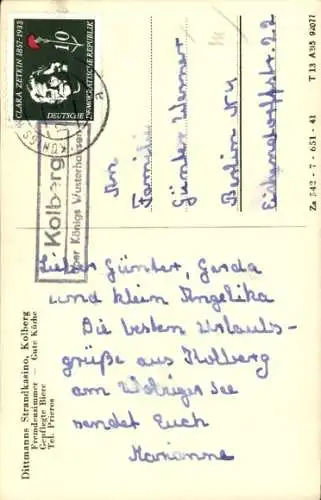 CLARA ZETKIN 1857-1933
10
DEUTSCHE
DEMOKRATISCHE REPUBLIK
Kolberg
über Königs Wusterhausen
An
Familie
Günter Werner
Berlin N4
Lieber Günter, Gerda
und klein Angelika
Die besten Urlaubs-
grüße aus Kolberg
am Wolziger See
sendet Euch
Marianne
Dittmanns Strandkasino, Kolberg
Fremdenzimmer — Gute Küche
Gepflegte Biere
Tel. Prieros
T 13 A 85 92077
Za 542 - 7 - 651 - 41